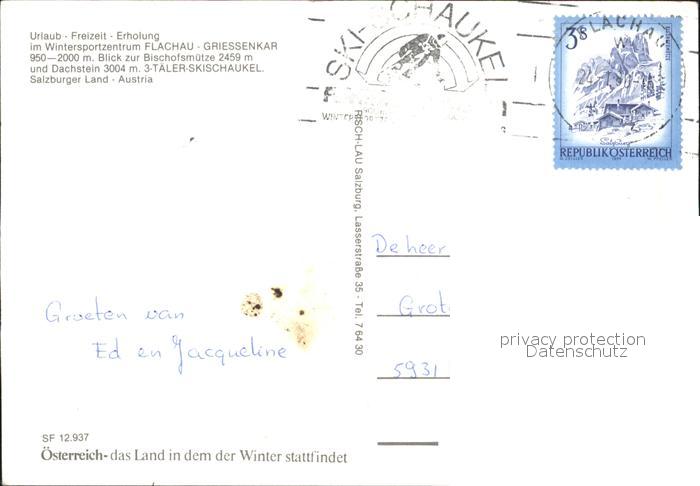 Urlaub - Freizeit - Erholung
im Wintersportzentrum FLACHAU - GRIESSENKAR
950—2000 m. Blick zur Bischofsmütze 2459 m
und Dachstein 3004 m. 3-TÄLER-SKISCHAUKEL.
Salzburger Land - Austria
SKI-SCHAUKEL
FLACHAU
3 S
Salzburg
REPUBLIK ÖSTERREICH
RISCH-LAU Salzburg, Lasserstraße 35 - Tel. 7 64 30
De heer
Grot
5931
privacy protection
Datenschutz
Groeten van
Ed en Jacqueline
SF 12.937
Österreich - das Land in dem der Winter stattfindet